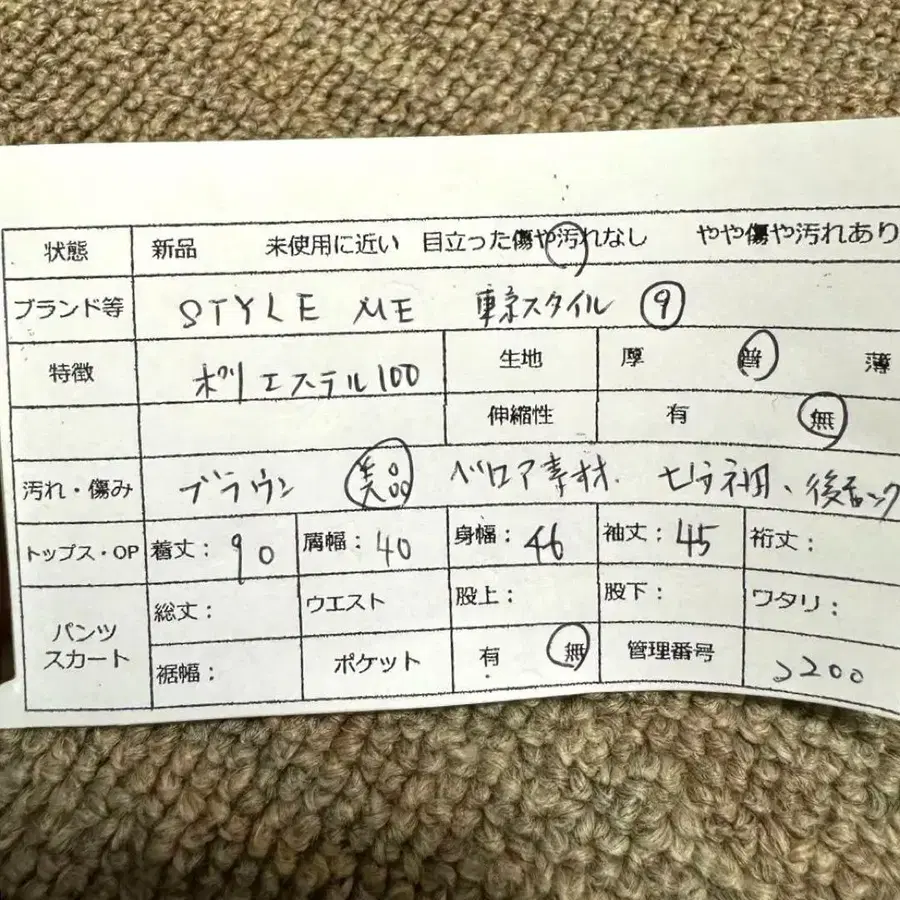 状態 新品 未使用に近い 目立った傷や汚れなし やや傷や汚れあり
ブランド等 STYLE ME 東京スタイル ⑨
特徴 ポリエステル100 生地 厚 普 薄
伸縮性 有 無
汚れ・傷み ブラウン 美品 ベロア素材. 七分袖、後
トップス・OP 着丈: 90 肩幅: 40 身幅: 46 袖丈: 45 裄丈:
パンツ スカート 総丈: ウエスト 股上: 股下: ワタリ:
裾幅: ポケット 有 無 管理番号 2200